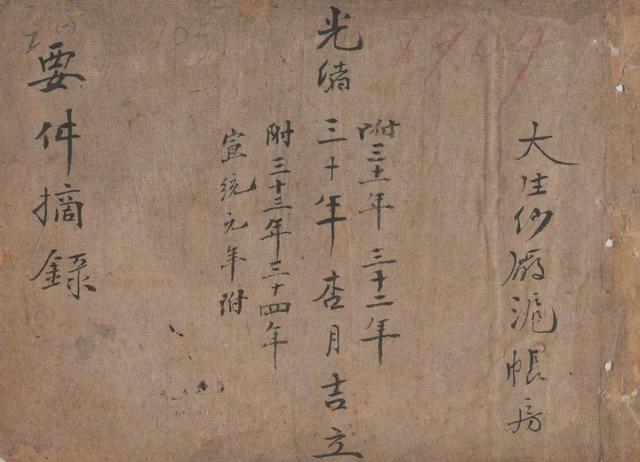 大生紗廠滬帳房
附三十一年三十二年
光緒三十年杏月吉立
附三十三年三十四年
宣統元年附
要件摘錄
1904